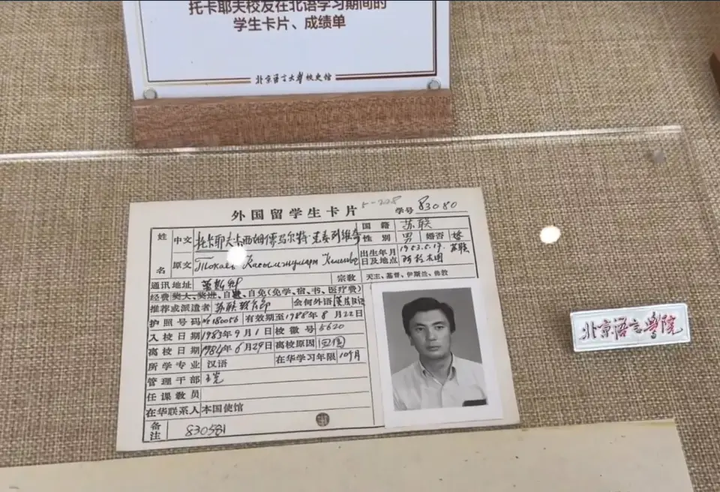 托卡耶夫校友在北语学习期间的
学生卡片、成绩单
北京语言大学校史馆
外国留学生卡片
学号 83080
姓名
中文 托卡耶夫·卡西姆 若马尔特·克麦列维奇
国籍 苏联
性别 男 婚否
原文 Токаев Касымжомарт
出生年月日及地点 1953.5.17. 苏联
通讯地址 莫斯科
宗教 天主、基督、伊斯兰、佛教
自免(免学、宿、书、医疗费)
推荐或派遣者 苏联 会何外语
护照号码 №180056 有效期至1988年8月22日
入校日期 1983年9月1日 校徽号 8620
离校日期 1984年6月29日 离校原因 回国
所学专业 汉语 在华学习年限 10个月
管理干部
任课教员
在华联系人 本国使馆
备注 830581
北京语言学院